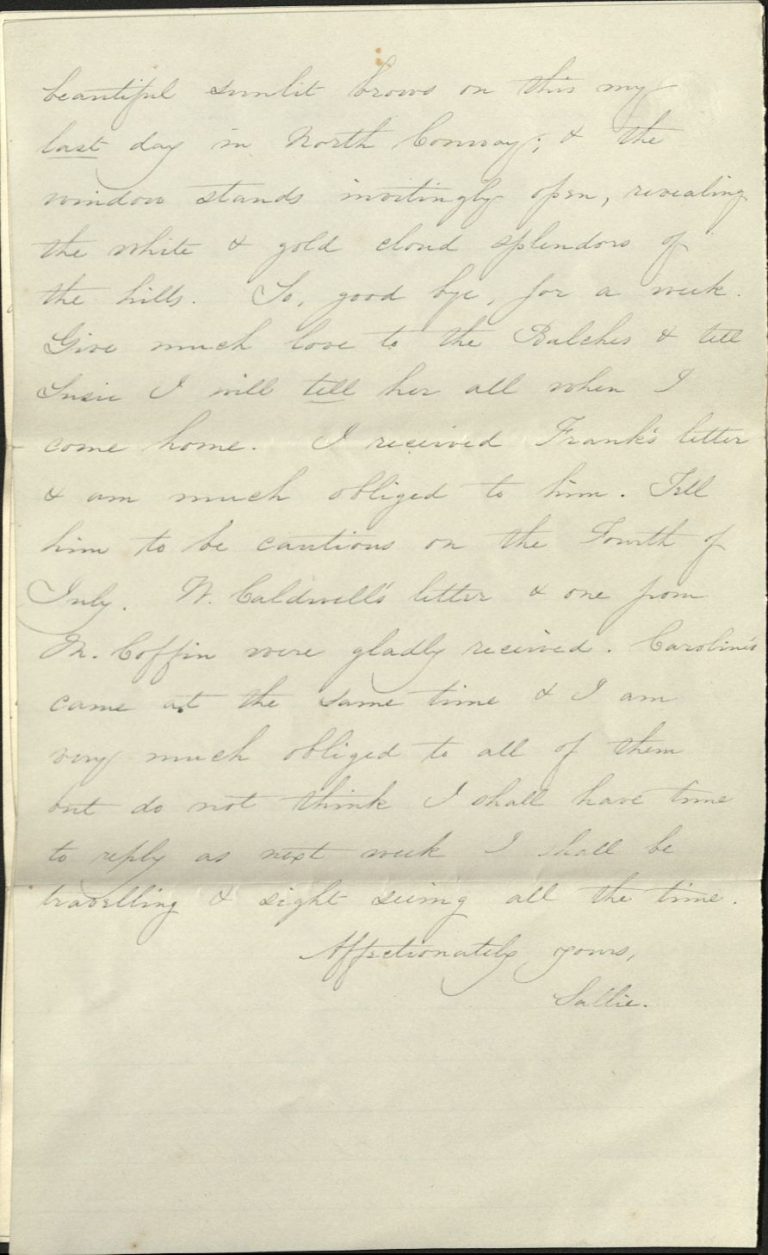 beautiful sunlit brows on this my
last day in North Conway; & the
window stands invitingly open, revealing
the white & gold cloud splendors of
the hills. So, good bye, for a week.
Give much love to the Balches & tell
Susie I will tell her all when I
come home. I received Frank's letter
& am much obliged to him. Tell
him to be cautious on the Fourth of
July. W. Caldwell's letter & one from
M. Coffin were gladly received. Caroline's
came at the same time & I am
very much obliged to all of them
but do not think I shall have time
to reply as next week I shall be
travelling & sight seeing all the time.
Affectionately yours,
Sallie.